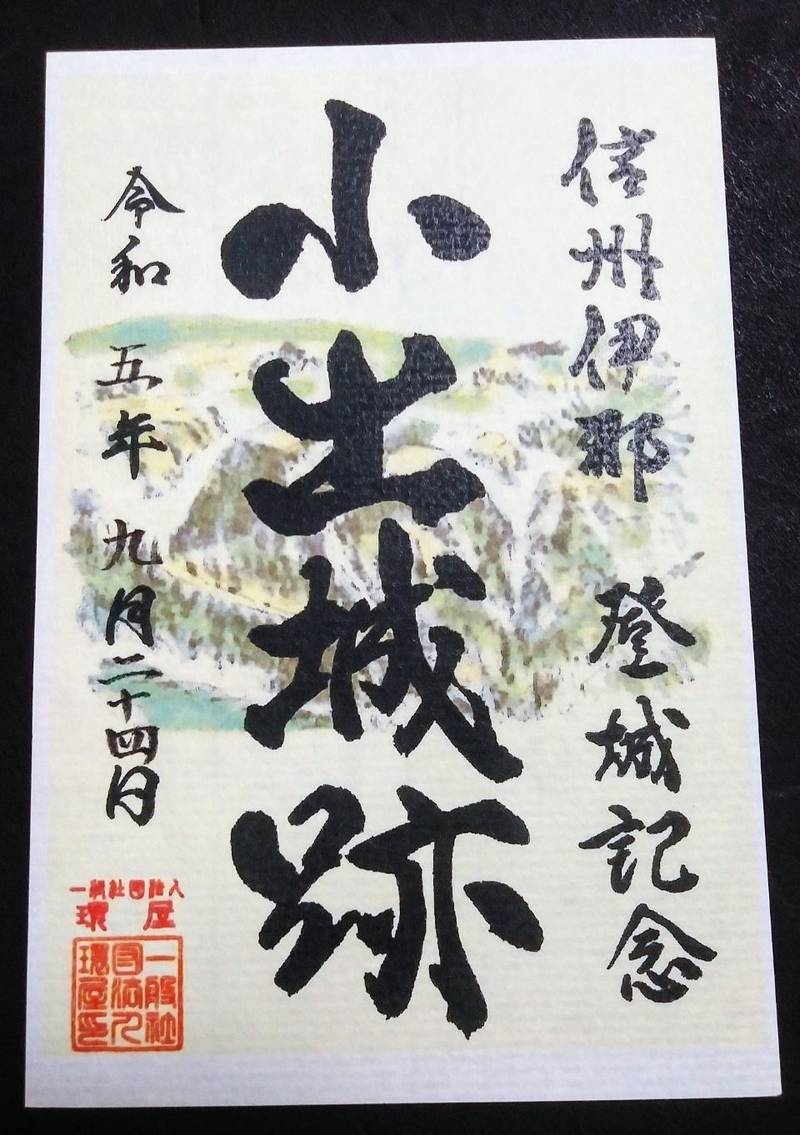 信州伊那 登城記念
小出城跡
令和 五年 九月二十四日
一般社団法人
環屋
一般社
団法人
環屋印